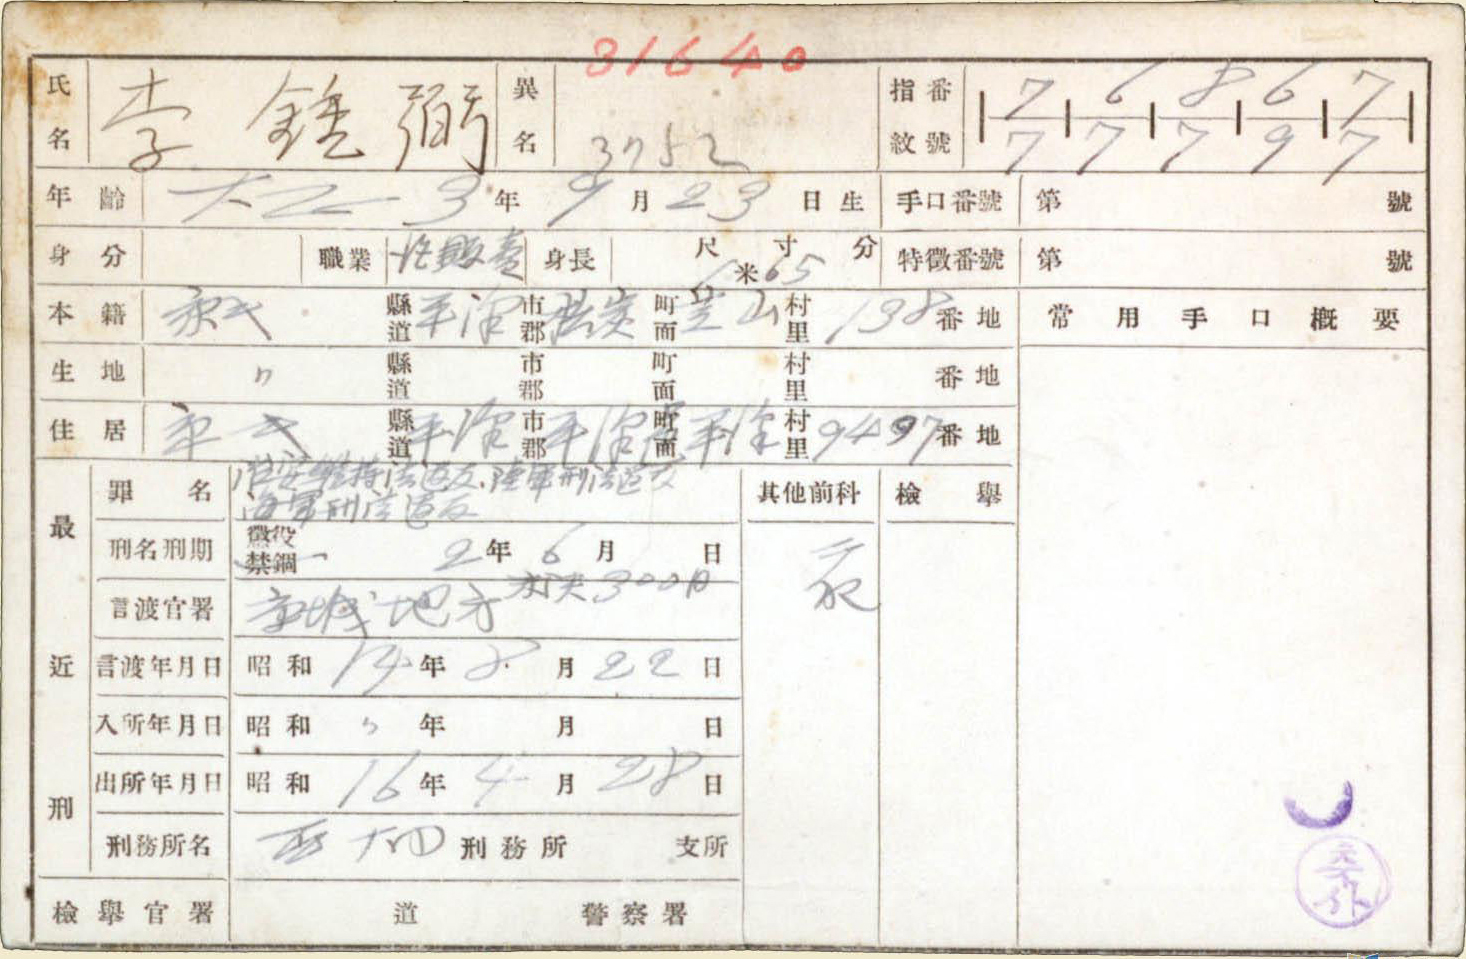 31640
氏名 李鍾弼 異名 3752 指紋番號 7 6 8 6 7
7 7 7 9 7
年齡 大正 3年 9月 23日生 手口番號 第 號
身分 職業 販賣 身長 尺 寸 分 米 65 特徵番號 第 號
本籍 縣道 平澤 市郡 町面 山 村里 138番地 常用手口概要
生地 〃 縣道 市郡 町面 村里 番地
住居 縣道 平澤 市郡 平澤 町面 平澤 村里 番地
最近刑
罪名 治安維持法違反、陸軍刑法違反 其他前科 檢擧
海軍刑法違反
刑名刑期 懲役禁錮 2年 6月 日
300日
言渡官署 京城地方
言渡年月日 昭和 14年 8月 22日
入所年月日 昭和 〃年 月 日
出所年月日 昭和 16年 4月 28日
刑務所名 西大門 刑務所 支所
檢擧官署 道 警察署